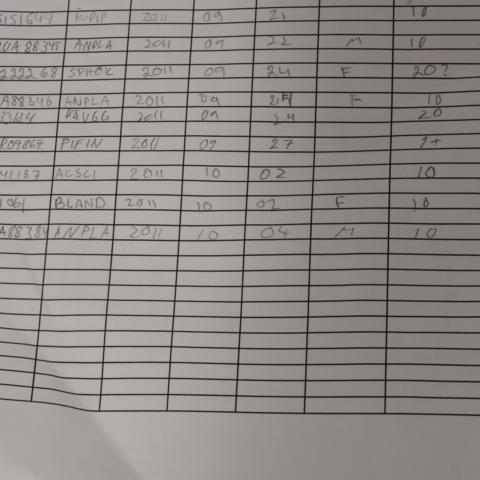 5151644 2011 09 21 10
UA88345 ANPLA 2011 09 22 M 10
222268 SPHOK 2011 09 24 F 20?
A88346 ANPLA 2011 09 24 F 10
PAVGG 2011 09 24 20
R09867 PIFIN 2011 09 27 2+
41137 ACSCI 2011 10 02 10
1061 BLAND 2011 10 02 F 10
A88384 ANPLA 2011 10 04 M 10